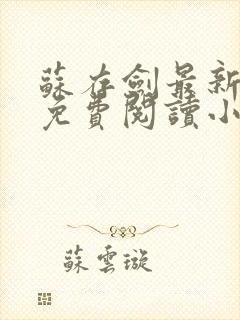 蘇存劍最新
免費閱讀小
蘇雲璇